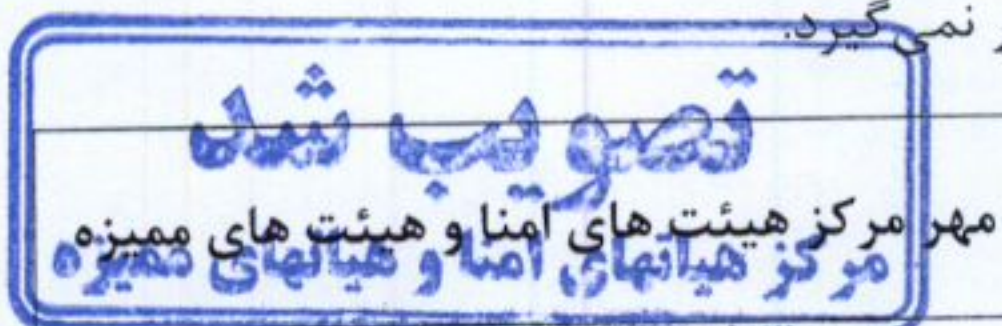 نمی گیرد.
تصویب شد
مهر مرکز هیئت های امنا و هیئت های ممیزه
مرکز هیاتهای امنا و هیاتهای ممیزه